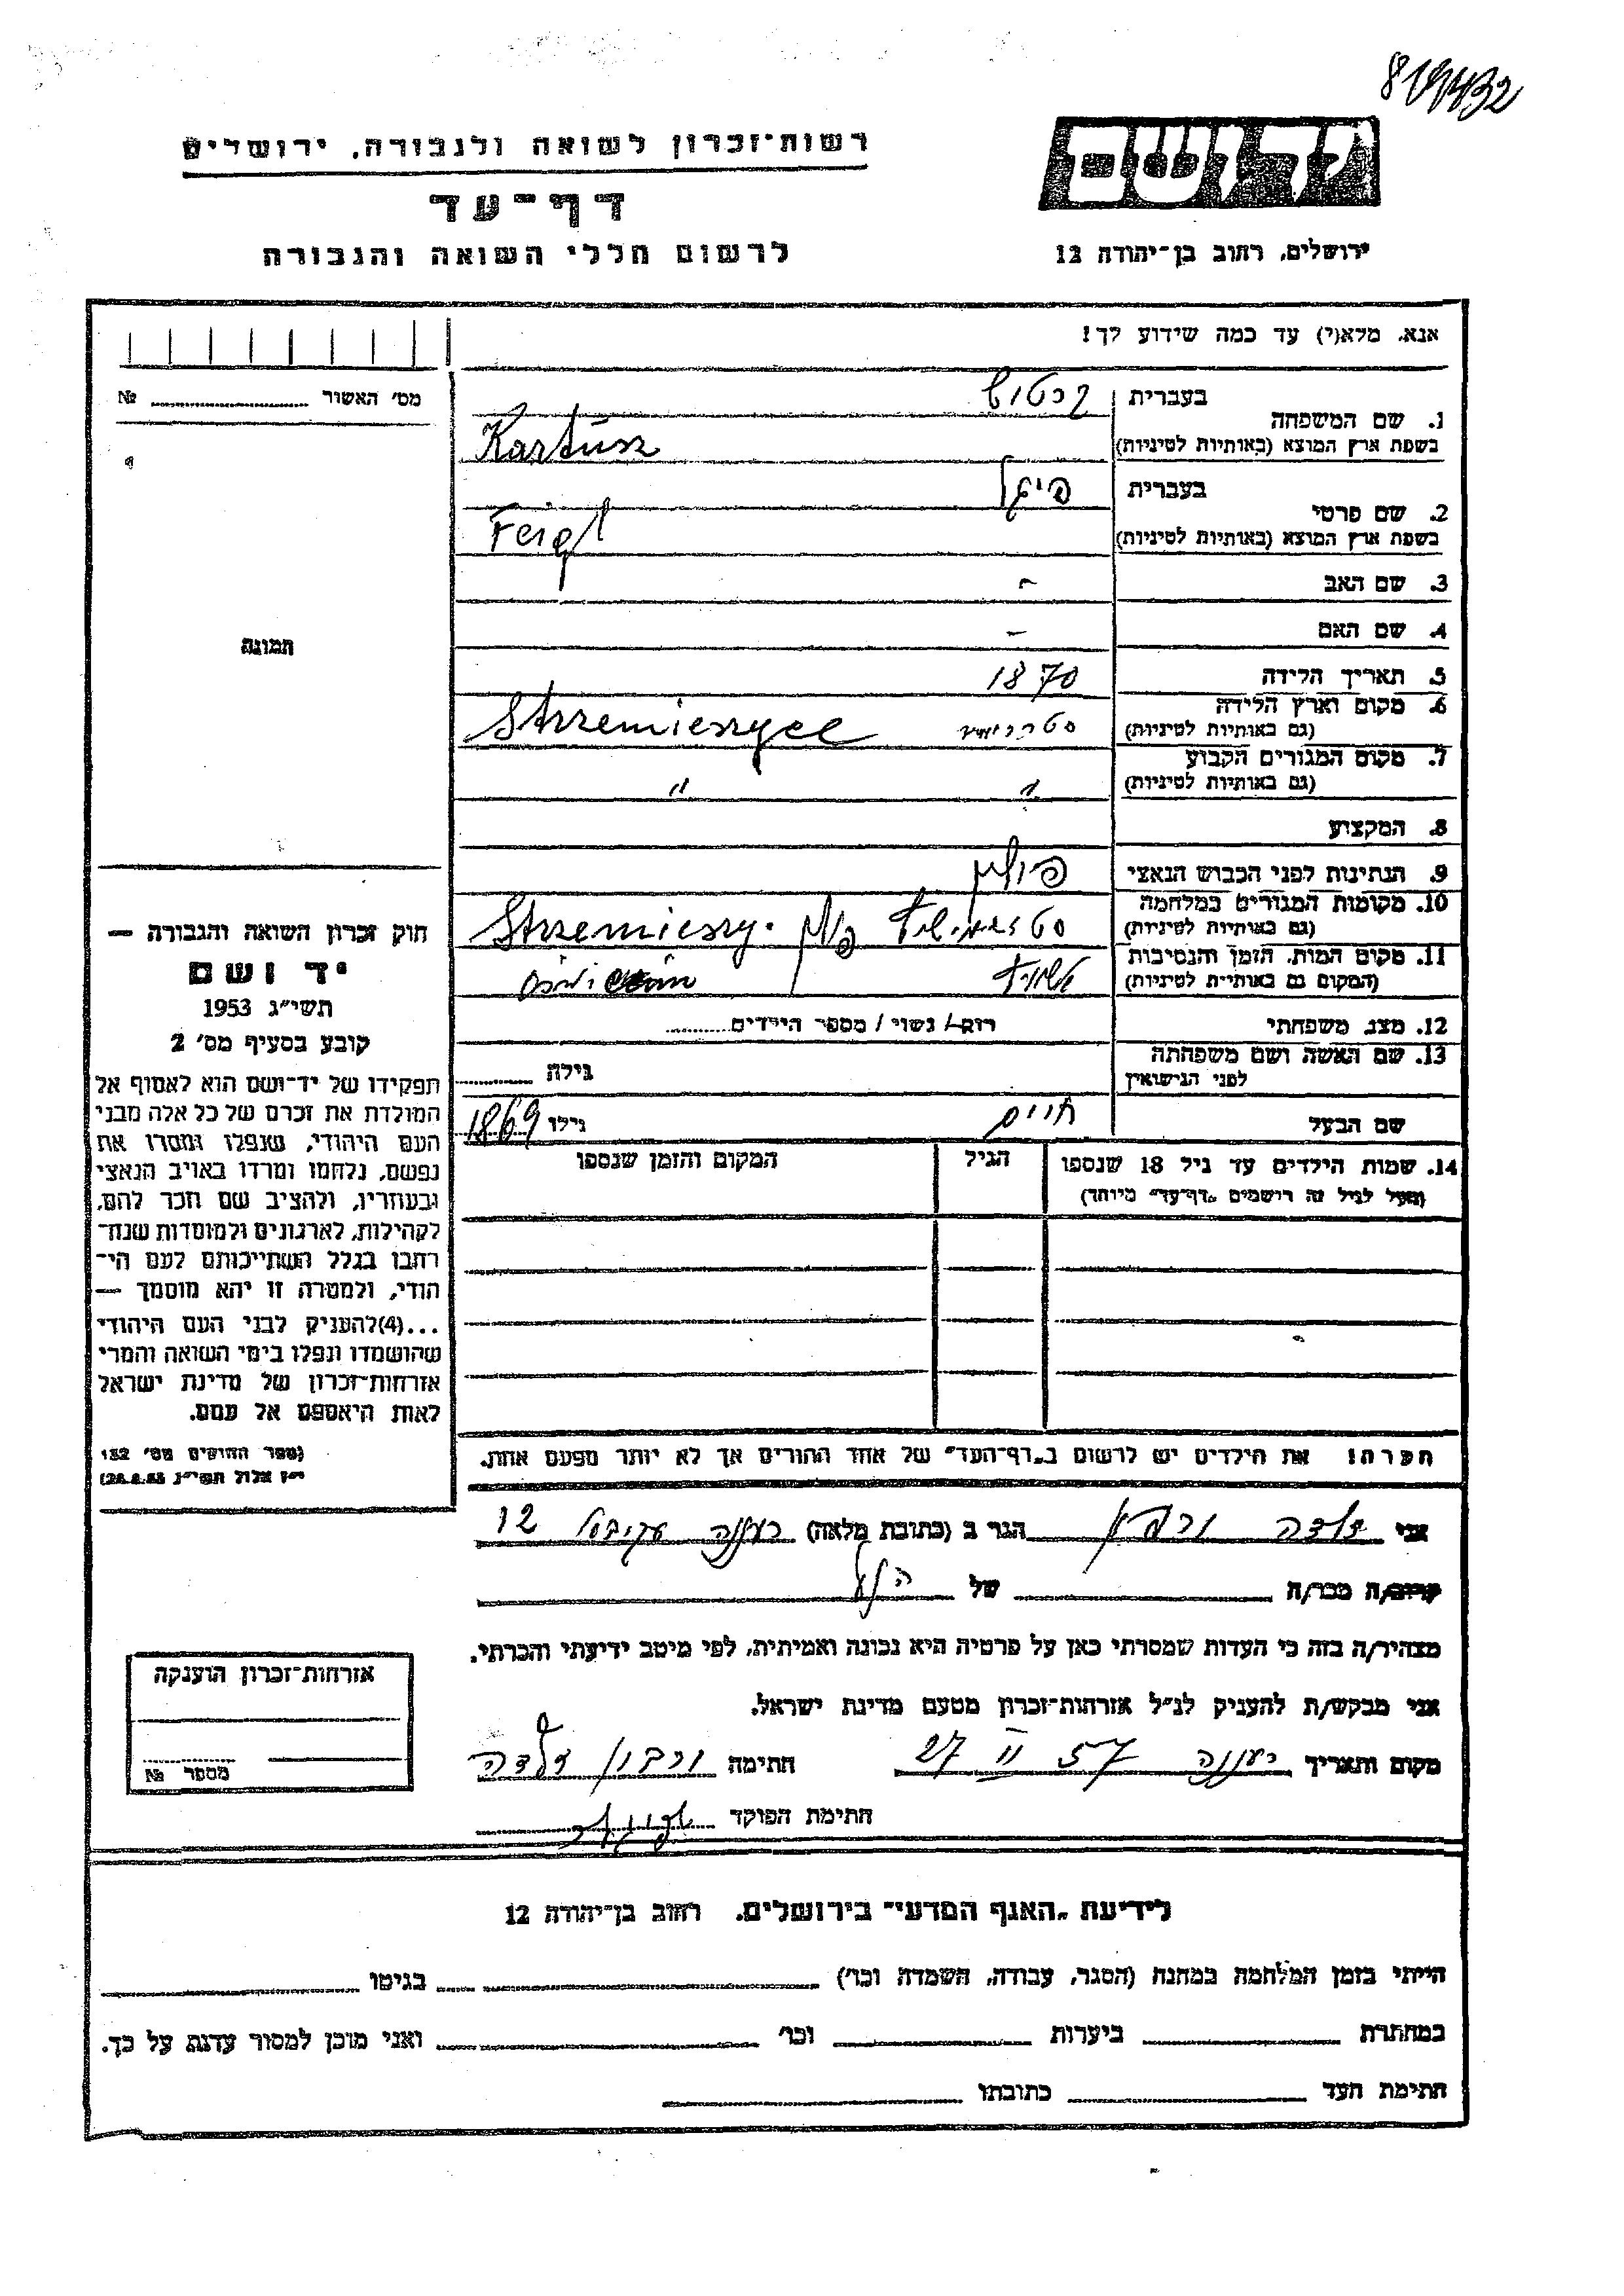 819432
רשות־זכרון לשואה ולגבורה, ירושלים
דף־עד
לרשום חללי השואה והגבורה
יד ושם
ירושלים, רחוב בן־יהודה 12
אנא, מלא(י) עד כמה שידוע לך!
מס' האשור № 
1. שם המשפחה
בעברית קרטוש
בשפת ארץ המוצא (באותיות לטיניות) Kartusz
2. שם פרטי
בעברית פיגל
בשפת ארץ המוצא (באותיות לטיניות) Feigl
3. שם האב -
4. שם האם -
5. תאריך הלידה 1870
6. מקום וארץ הלידה
(גם באותיות לטיניות) Strzemieszyce
7. מקום המגורים הקבוע
(גם באותיות לטיניות) " "
8. המקצוע
9. הנתינות לפני הכבוש הנאצי פולין
10. מקומות המגורים במלחמה
(גם באותיות לטיניות) Strzemieszy.
11. מקום המות, הזמן והנסיבות
(המקום גם באותיית לטיניות)
12. מצב משפחתי רוק/ נשוי / מספר הילדים
13. שם האשה ושם משפחתה
לפני הנישואין גילה
שם הבעל חיים גילו 1869
14. שמות הילדים עד גיל 18 שנספו הגיל המקום והזמן שנספו
(מעל לגיל זה רושמים "דף־עד" מיוחד)
הערה! את הילדים יש לרשום ב"דף־העד" של אחד ההורים אך לא יותר מפעם אחת.
תמונה
חוק זכרון השואה והגבורה —
יד ושם
תשי״ג 1953
קובע בסעיף מס' 2
תפקידו של יד־ושם הוא לאסוף אל
המולדת את זכרם של כל אלה מבני
העם היהודי, שנפלו ומסרו את
נפשם, נלחמו ומרדו באויב הנאצי
ובעוזריו, ולהציב שם וזכר להם,
לקהילות, לארגונים ולמוסדות שנח־
רבו בגלל השתייכותם לעם הי־
הודי, ולמטרה זו יהא מוסמך —
...(4)להעניק לבני העם היהודי
שהושמדו ונפלו בימי השואה והמרי
אזרחות־זכרון של מדינת ישראל
לאות היאספם אל עמם.
(ספר החוקים מס' 132
י״ז אלול תשי״ג 28.8.53)
אני הגר ב (כתובת מלאה) רעננה 12
קרוב/ה מכר/ה של הנ״ל
מצהיר/ה בזה כי העדות שמסרתי כאן על פרטיה היא נכונה ואמיתית, לפי מיטב ידיעתי והכרתי.
אני מבקש/ת להעניק לנ״ל אזרחות־זכרון מטעם מדינת ישראל.
מקום ותאריך רעננה 27 II 57 חתימה
חתימת הפוקד
אזרחות־זכרון הוענקה
מספר №
לידיעת "האגף המדעי" בירושלים, רחוב בן־יהודה 12
הייתי בזמן המלחמה במחנה (הסגר, עבודה, השמדה וכו') בגיטו
במחתרת ביערות וכו' ואני מוכן למסור עדות על כך.
חתימת העד כתובתו